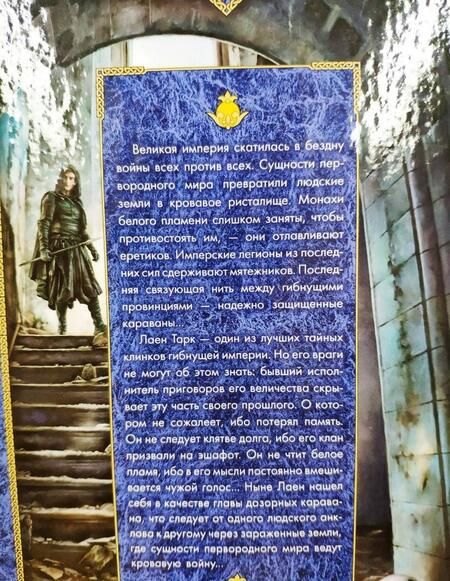 Великая империя скатилась в бездну
войны всех против всех. Сущности пер-
вородного мира превратили людские
земли в кровавое ристалище. Монахи
белого пламени слишком заняты, чтобы
противостоять им, — они отлавливают
еретиков. Имперские легионы из послед-
них сил сдерживают мятежников. Послед-
няя связующая нить между гибнущими
провинциями — надежно защищенные
караваны...
Лаен Тарк — один из лучших тайных
клинков гибнущей империи. Но его враги
не могут об этом знать: бывший испол-
нитель приговоров его величества скры-
вает эту часть своего прошлого. О кото-
ром не сожалеет, ибо потерял память.
Он не следует клятве долга, ибо его клан
призвали на эшафот. Он не чтит белое
пламя, ибо в его мысли постоянно вмеши-
вается чужой голос... Ныне Лаен нашел
себя в качестве главы дозорных карава-
на, что следует от одного людского анк-
лава к другому через зараженные земли,
где сущности первородного мира ведут
кровавую войну...